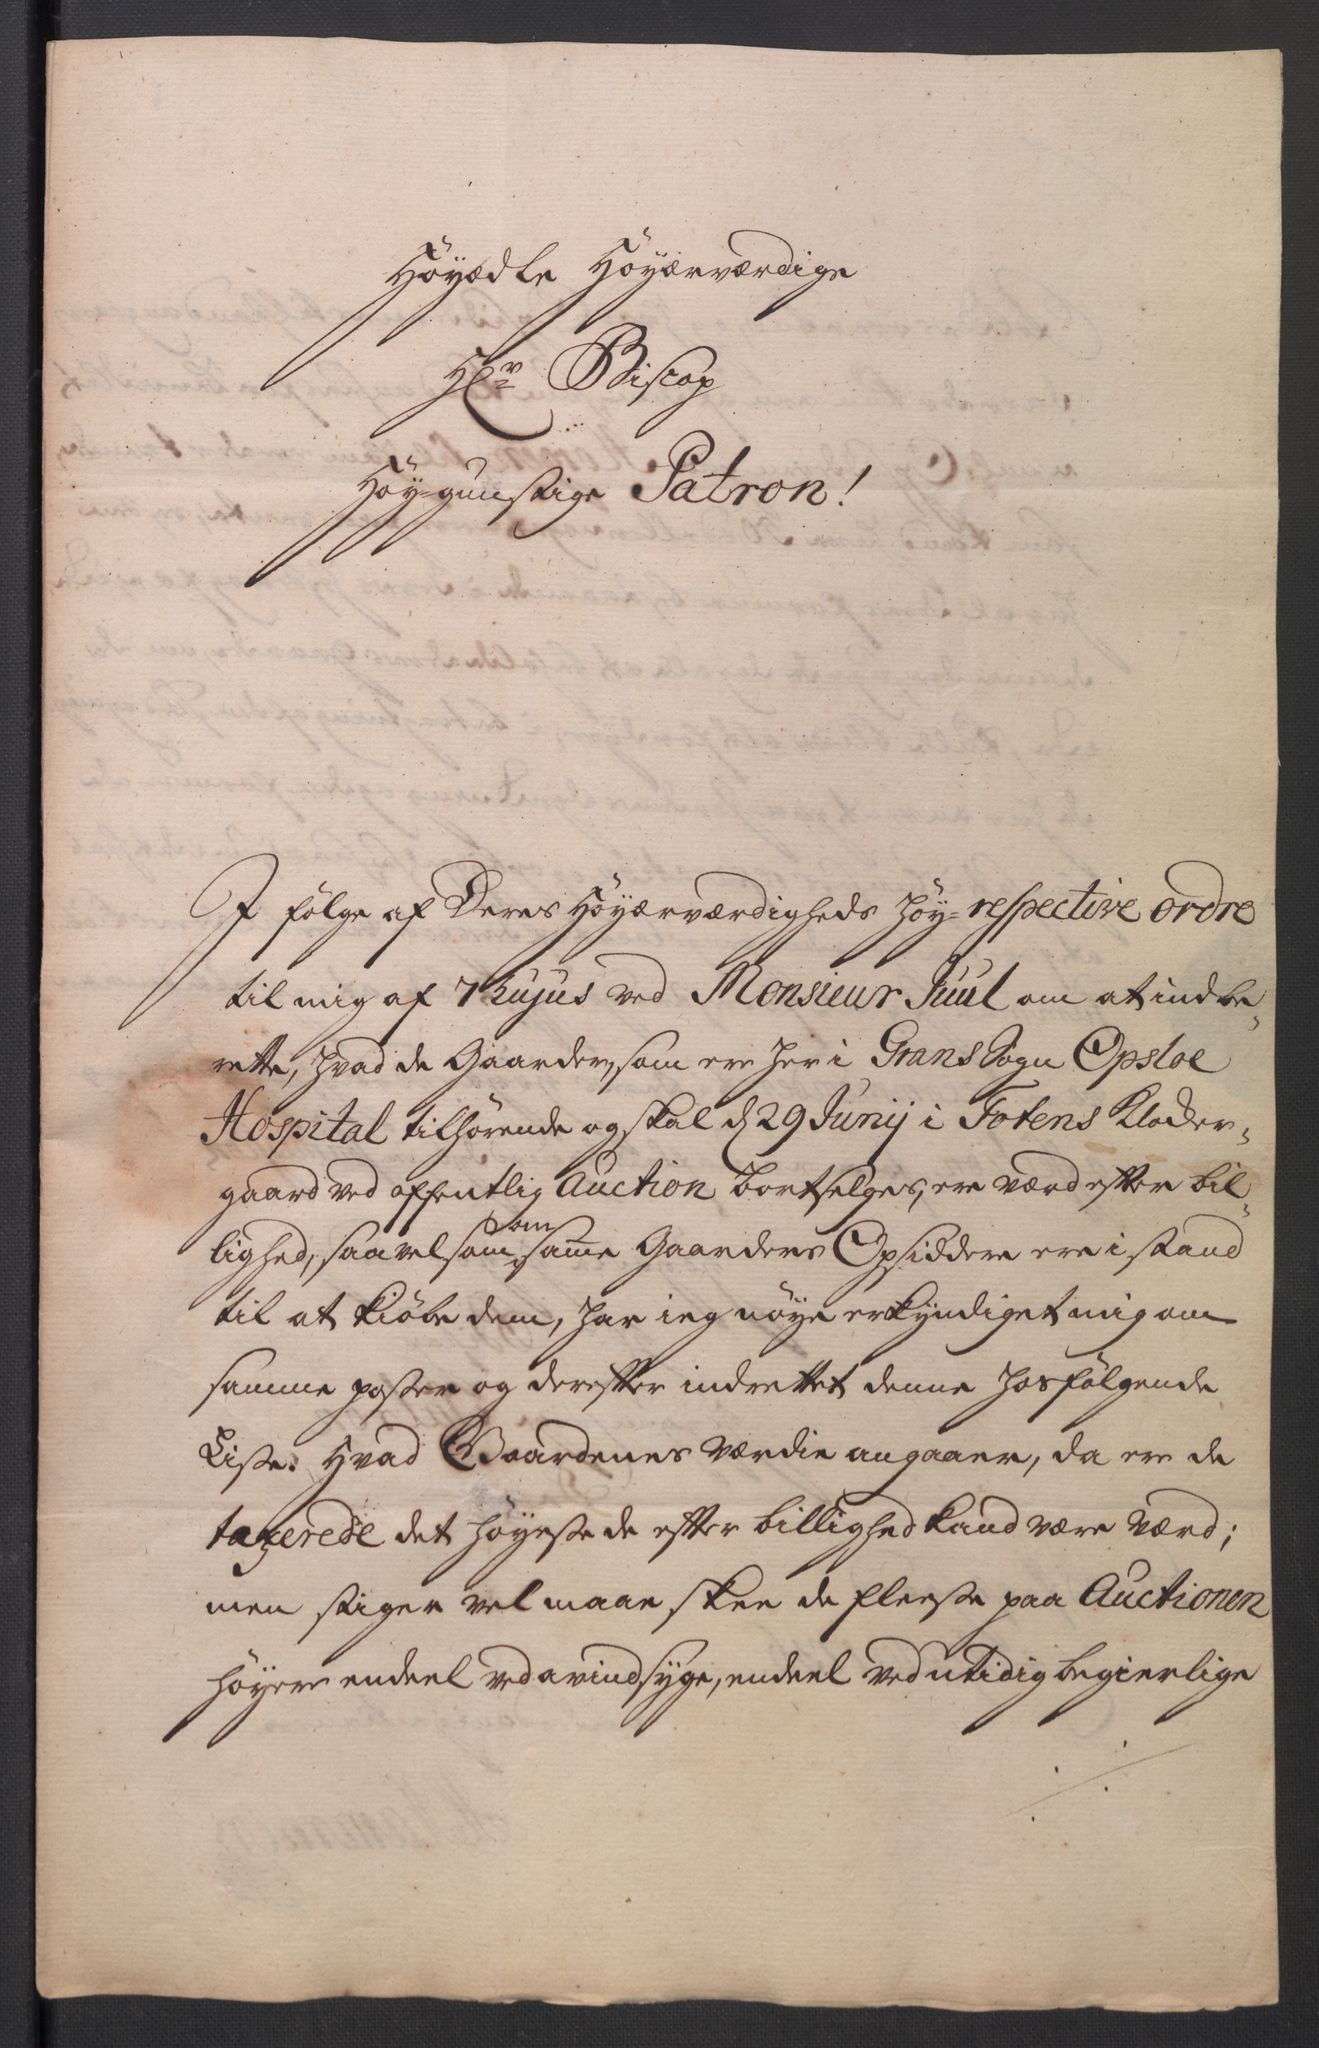 Höyædle Höyærværdige
Hr Biscop
Höy-gunstige Patron!
I fölge af Deres Höyærværdigheds Höy-respective ordre
til mig af 7 hujus ved Monsieur Juul om at indbe-
rette, hvad de Gaarder, som ere her i Grans Sogn Opsloe
Hospital tilhörende og skal d 29 Junij i Totens Kloder-
gaard ved offentlig Auction bortselges, ere værd efter bil-
lighed, saavel som om samme Gaarders Opsiddere ere i stand
til at kiöbe dem, har ieg nöye erkyndiget mig om
samme poster og derefter indrettet denne hosfölgende
Liste. Hvad Gaardenes værdie angaaer, da ere de
taxerede det höyeste de efter billighed kand være værd;
men stiger vel maaskee de fleeste paa Auctionen
höyere endeel ved avindsyge, endeel ved utidig begierlige